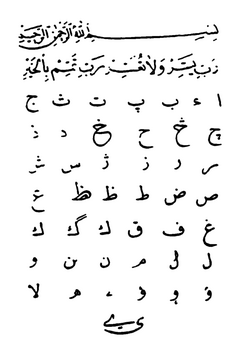 بسم الله الرحمن الرحيم
رب يسر ولا تعسر رب تمم بالخير
ا ء ب پ ت ث ج
چ څ ح خ د ذ
ر ز ژ س ش
ص ض ط ظ ع
غ ف ق ك گ ك
ل م ن و
ء ه لا
ي ے